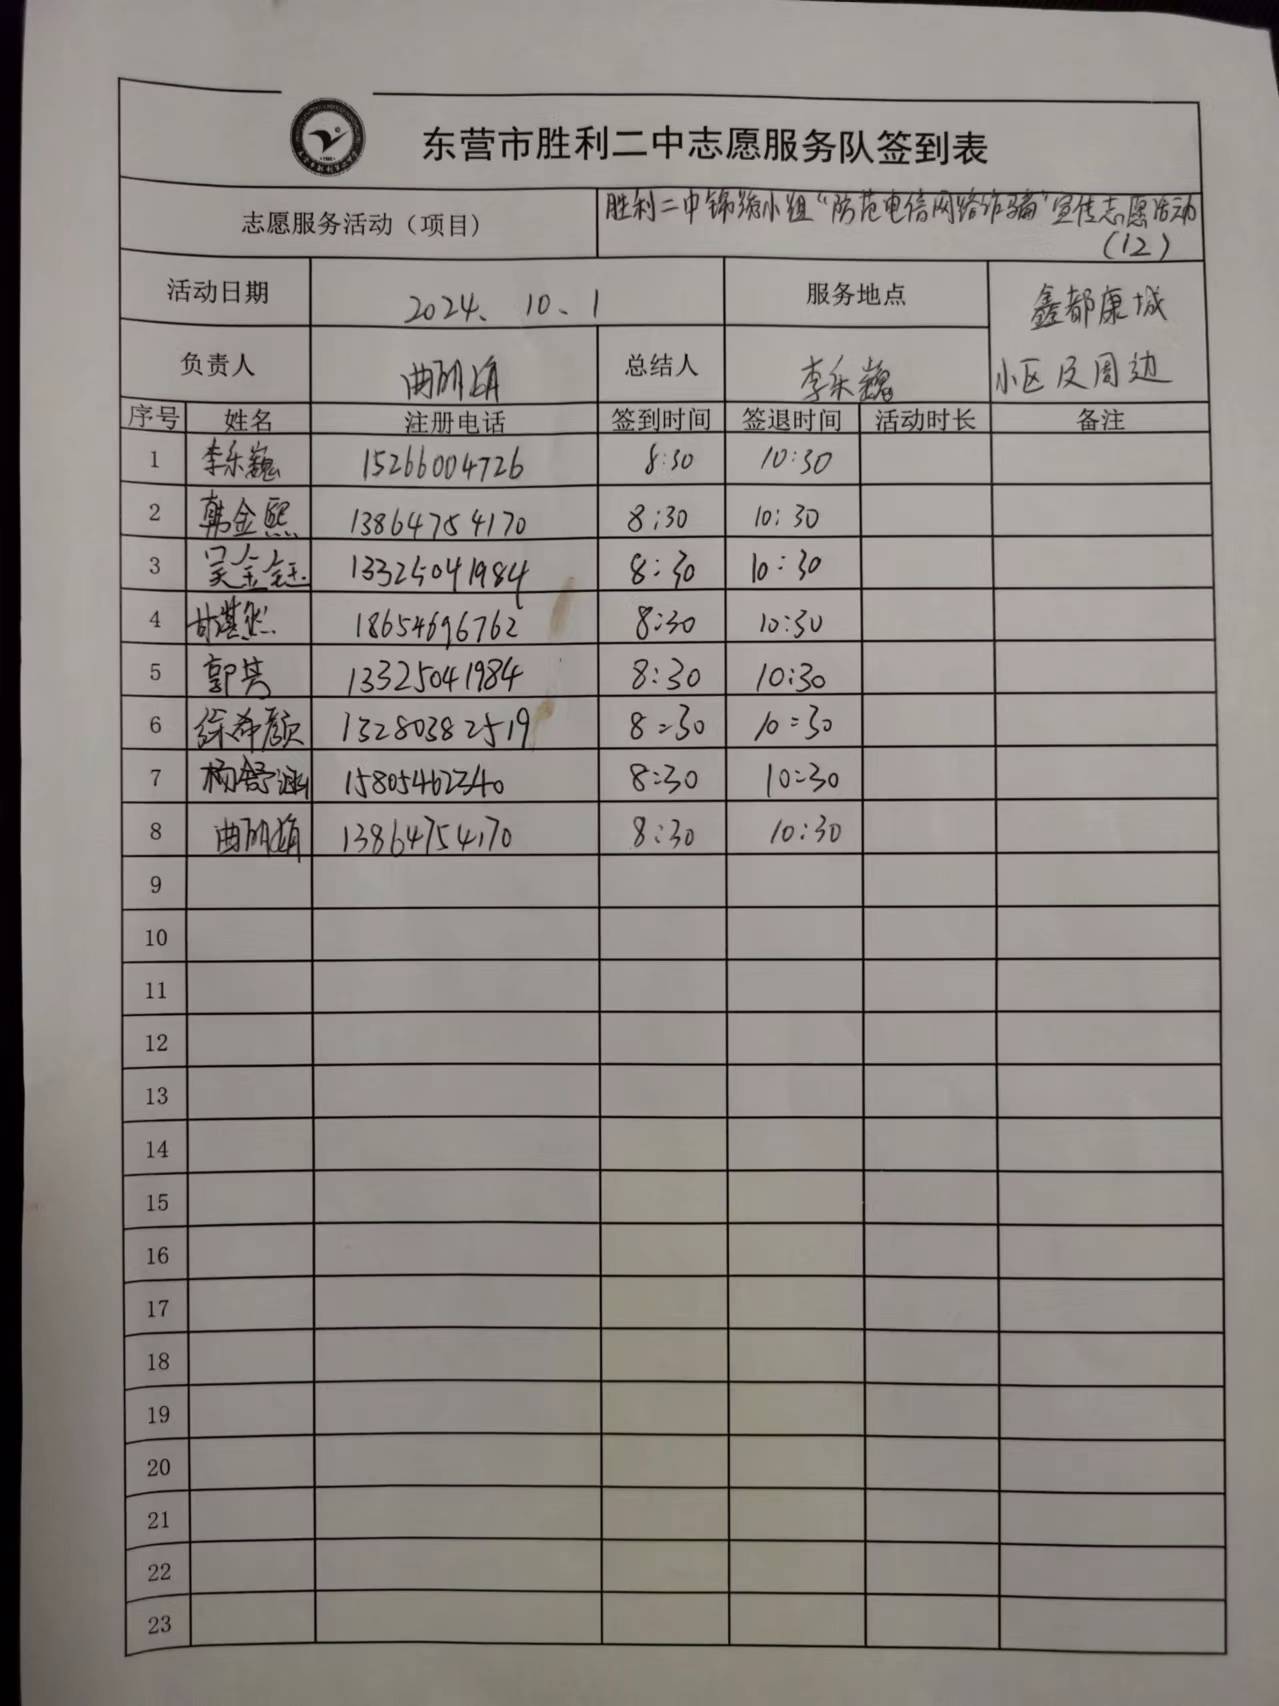 东营市胜利二中志愿服务队签到表
志愿服务活动（项目） 胜利二中锦绣小组“防范电信网络诈骗”宣传志愿活动
（12）
活动日期 2024、10、1 服务地点 鑫都康城
负责人 曲丽娟 总结人 李乐巍 小区及周边
序号 姓名 注册电话 签到时间 签退时间 活动时长 备注
1 李乐巍 15266004726 8:30 10:30
2 韩金熙 13864754170 8:30 10:30
3 吴金钰 13325041984 8:30 10:30
4 甘淇然 18654696762 8:30 10:30
5 郭芳 13325041984 8:30 10:30
6 徐希颜 13280382519 8:30 10:30
7 杨舒涵 15805462340 8:30 10:30
8 曲丽娟 13864754170 8:30 10:30
9
10
11
12
13
14
15
16
17
18
19
20
21
22
23